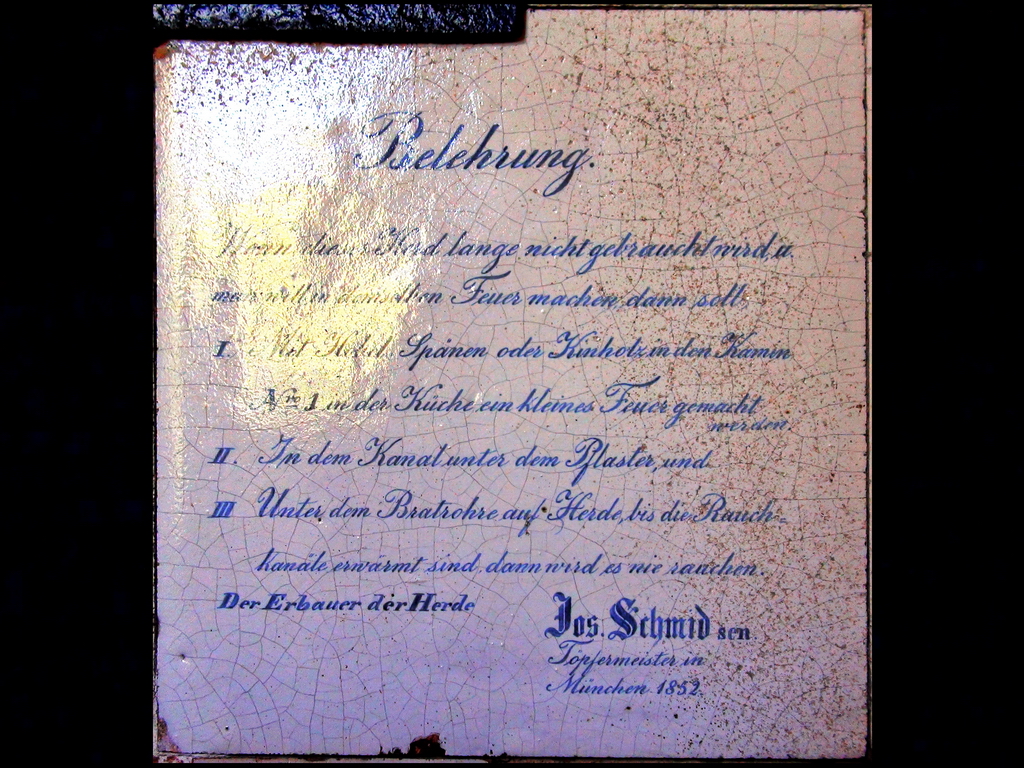 Belehrung.
Wenn dieser Herd lange nicht gebraucht wird, u
man will in demselben Feuer machen, dann soll
I. Mit Hobel Spänen oder Kinholz in den Kamin
Nro 1 in der Küche ein kleines Feuer gemacht
werden.
II. In dem Kanal unter dem Pflaster, und
III Unter dem Bratrohre auf Herde, bis die Rauch-
kanäle erwärmt sind, dann wird es nie rauchen.
Der Erbauer der Herde
Jos. Schmid sen
Töpfermeister in
München 1852.